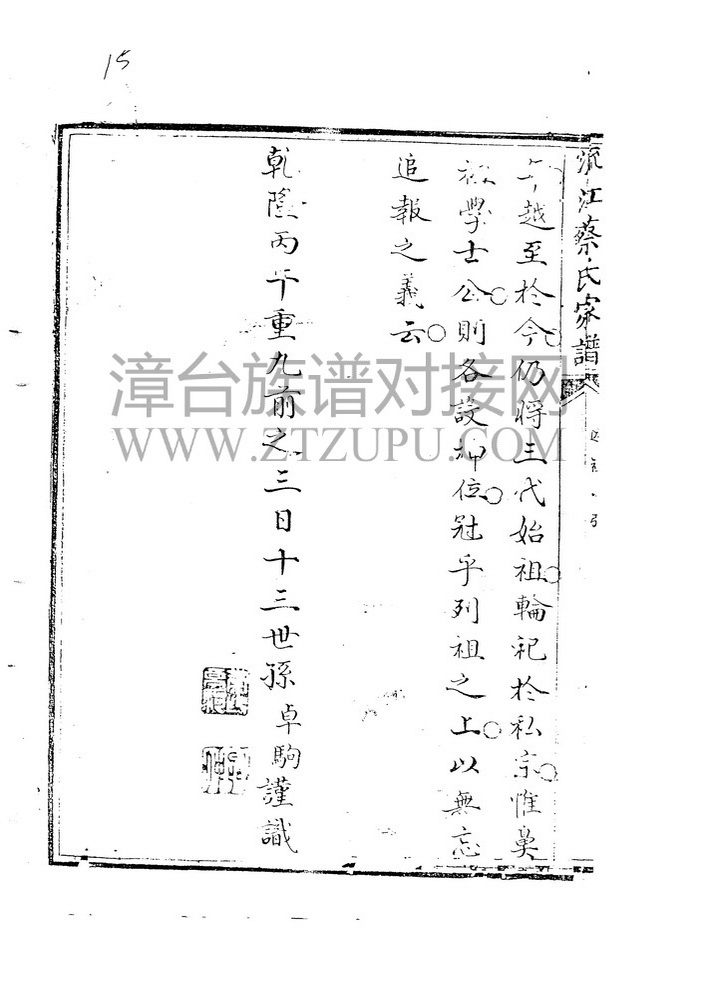 15
流江蔡氏家譜
越至於今仍將三代始祖輪祀於私宗惟鼻
祖學士公則各設神位冠乎列祖之上以無忘
追報之義云
乾隆丙午重九前之三日十三世孫卓駒謹識
漳台族谱对接网
WWW.ZTZUPU.COM